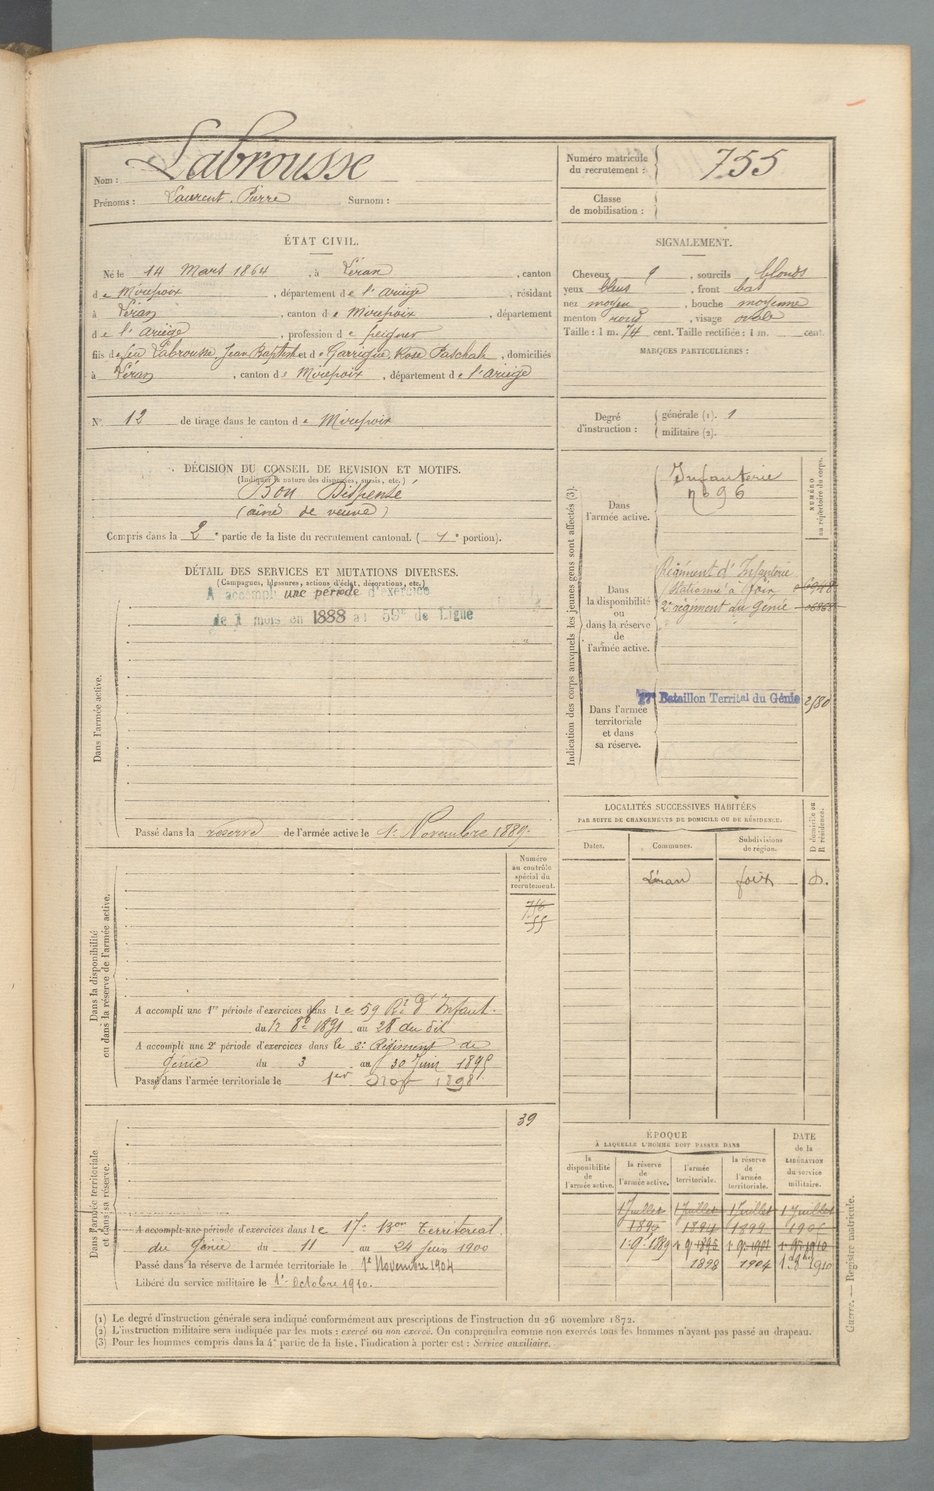 Nom : Labrousse
Prénoms : Laurent, Pierre Surnom :
Numéro matricule
du recrutement : 755
Classe
de mobilisation :
ÉTAT CIVIL.
Né le 14 Mars 1864, à Léran, canton
de Mirepoix, département de l'Ariège, résidant
à Léran, canton de Mirepoix, département
de l'Ariège, profession de peigneur
fils de feu Labrousse Jean Baptiste et de Garrigue Rose Paschale, domiciliés
à Léran, canton de Mirepoix, département de l'Ariège
N° 12 de tirage dans le canton de Mirepoix
SIGNALEMENT.
Cheveux , sourcils blonds
yeux bleus, front bas
nez moyen, bouche moyenne
menton rond, visage ovale
Taille : 1 m. 74 cent. Taille rectifiée : 1 m. cent.
MARQUES PARTICULIÈRES :
Degré
d'instruction :
générale (1). 1
militaire (2).
DÉCISION DU CONSEIL DE REVISION ET MOTIFS.
(Indiquer la nature des dispenses, sursis, etc.)
Bon Dispensé
(aîné de veuve)
Compris dans la 2e partie de la liste du recrutement cantonal. ( 1e portion).
DÉTAIL DES SERVICES ET MUTATIONS DIVERSES.
(Campagnes, blessures, actions d'éclat, décorations, etc.)
Dans l'armée active.
A accompli une période d'exercice
de 1 mois en 1888 au 59e de Ligne
Passé dans la réserve de l'armée active le 1er Novembre 1889.
Indication des corps auxquels les jeunes gens sont affectés (3).
NUMÉRO
au répertoire du corps.
Dans
l'armée active.
Infanterie
n° 96
Dans
la disponibilité
ou
dans la réserve
de
l'armée active.
Régiment d'Infanterie
stationné à Foix
2e régiment du Génie
Dans l'armée
territoriale
et dans
sa réserve.
17e Bataillon Territal du Génie 2/80
LOCALITÉS SUCCESSIVES HABITÉES
PAR SUITE DE CHANGEMENTS DE DOMICILE OU DE RÉSIDENCE.
D domicile ou
R résidence.
Dates. Communes. Subdivisions
de région.
Léran Foix D.
Dans la disponibilité
ou dans la réserve de l'armée active.
Numéro
au contrôle
spécial du
recrutement.
A accompli une 1re période d'exercices dans le 59 Rt d'Infant.
du 12 8bre 1891 au 28 du dit
A accompli une 2e période d'exercices dans le 2e Régiment de
Génie du 3 au 30 Juin 1895
Passé dans l'armée territoriale le 1er Nov 1898
Dans l'armée territoriale
et dans sa réserve.
39
A accompli une période d'exercices dans le 17e Bon Territorial
du Génie du 11 au 24 juin 1900
Passé dans la réserve de l'armée territoriale le 1er Novembre 1904
Libéré du service militaire le 1er Octobre 1910.
ÉPOQUE
À LAQUELLE L'HOMME DOIT PASSER DANS
DATE
de la
LIBÉRATION
du service
militaire.
la
disponibilité
de
l'armée active.
la réserve
de
l'armée active.
l'armée
territoriale.
la réserve
de
l'armée
territoriale.
1 Juillet 1 Juillet 1 Juillet 1 Juillet
1899
1-9-1889
1898 1904 1910
(1) Le degré d'instruction générale sera indiqué conformément aux prescriptions de l'instruction du 26 novembre 1872.
(2) L'instruction militaire sera indiquée par les mots : exercé ou non exercé. On comprendra comme non exercés tous les hommes n'ayant pas passé au drapeau.
(3) Pour les hommes compris dans la 4e partie de la liste, l'indication à porter est : Service auxiliaire.
Guerre. — Registre matricule.